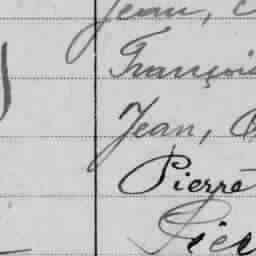 Jean,
François
Jean,
Pierre